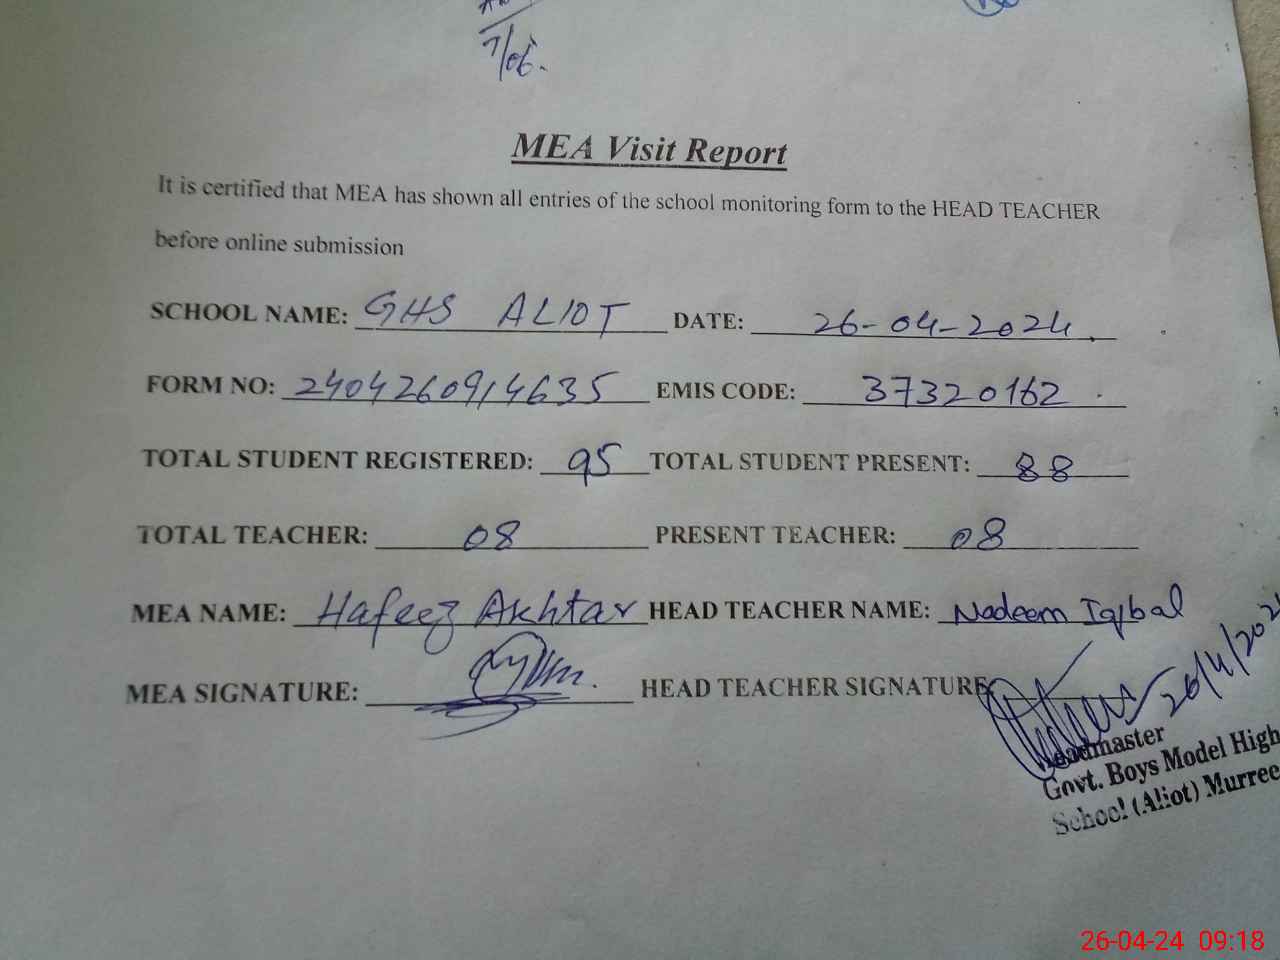 7/06.
MEA Visit Report
It is certified that MEA has shown all entries of the school monitoring form to the HEAD TEACHER
before online submission
SCHOOL NAME: GHS ALIOT DATE: 26-04-2024.
FORM NO: 2404260914635 EMIS CODE: 37320162
TOTAL STUDENT REGISTERED: 95 TOTAL STUDENT PRESENT: 88
TOTAL TEACHER: 08 PRESENT TEACHER: 08
MEA NAME: Hafeez Akhtar HEAD TEACHER NAME: Nadeem Iqbal
MEA SIGNATURE: HEAD TEACHER SIGNATURE
26/4/202
Headmaster
Govt. Boys Model High
School (Aliot) Murree
26-04-24 09:18